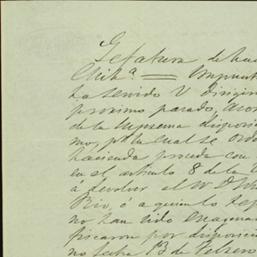 Gefatura de hac
Chih.ª = Impuest
ha servido V dirigir
proximo pasado, acom
de la suprema disposici
mo, pr. la cual se orde
hacienda proceda con
en el articulo 8 de la
a devolver al
Rio, ó a quien lo rep
no han sido enagena
fiscaron por disposicio
no fecha 13 de Febrero